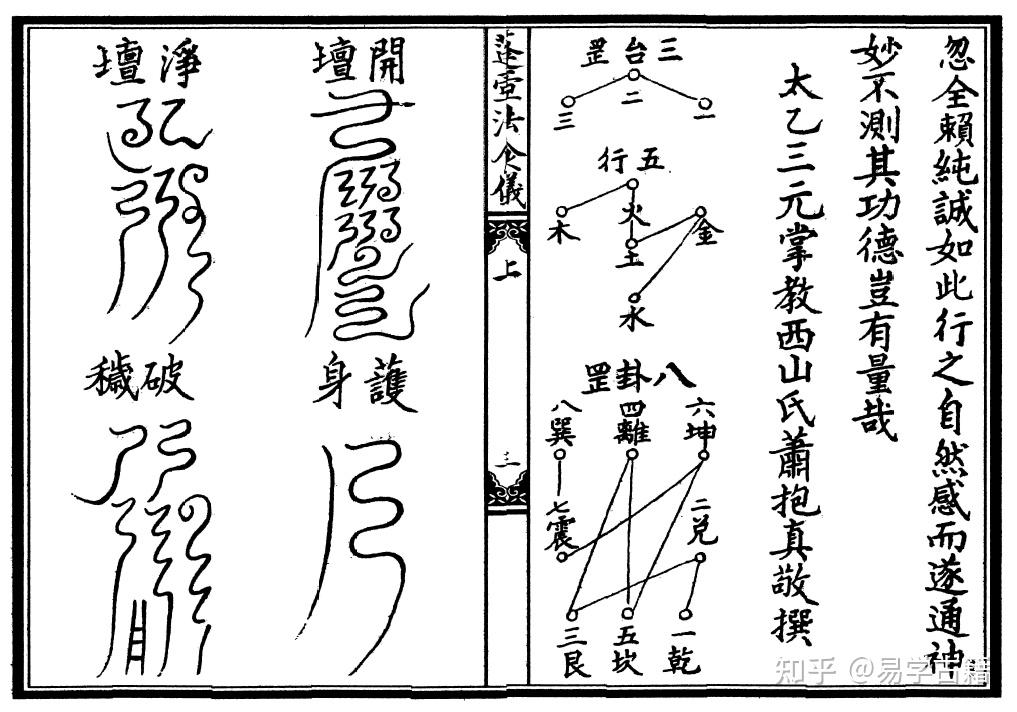 忽全賴純誠如此行之自然感而遂通神
妙不測其功德豈有量哉
太乙三元掌教西山氏蕭抱真敬撰
三台罡
一
二
三
五行
金
火
土
木
水
八卦罡
六坤
四離
八巽
二兌
七震
一乾
五坎
三艮
蓬壺法食儀
上
三
開壇
護身
淨壇
破穢
知乎 @易学古籍